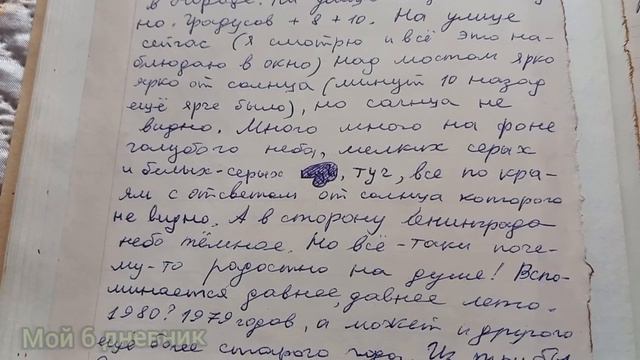 но. Градусов + 8 + 10. На улице
сейчас (я смотрю и всё это на-
блюдаю в окно) над мостом ярко
ярко от солнца (минут 10 назад
ещё ярче было), но солнца не
видно. Много много на фоне
голубого неба, мелких серых
и белых-серых туч, все по кра-
ям с отсветом от солнца которого
не видно. А в сторону Ленинграда
небо тёмное. Но всё-таки поче-
му-то радостно на душе! Вспо-
минается давнее, давнее лето.
1980? 1979 годов, а может и другого
ещё более старого года. Из трубы
Мой дневник